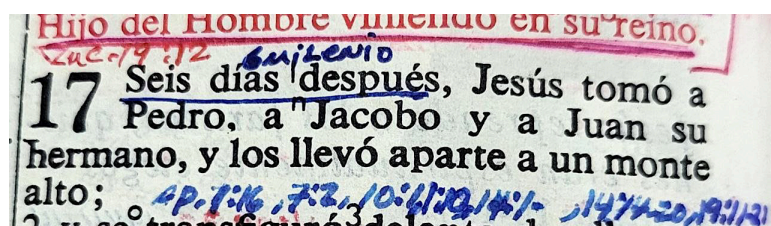 Hijo del Hombre viniendo en su reino.
Luc-19:12 6 milenio
17 Seis días después, Jesús tomó a
Pedro, a Jacobo y a Juan su
hermano, y los llevó aparte a un monte
alto; Ap. 1:16, 7:2, 10:1
2 y se transfiguró delante de